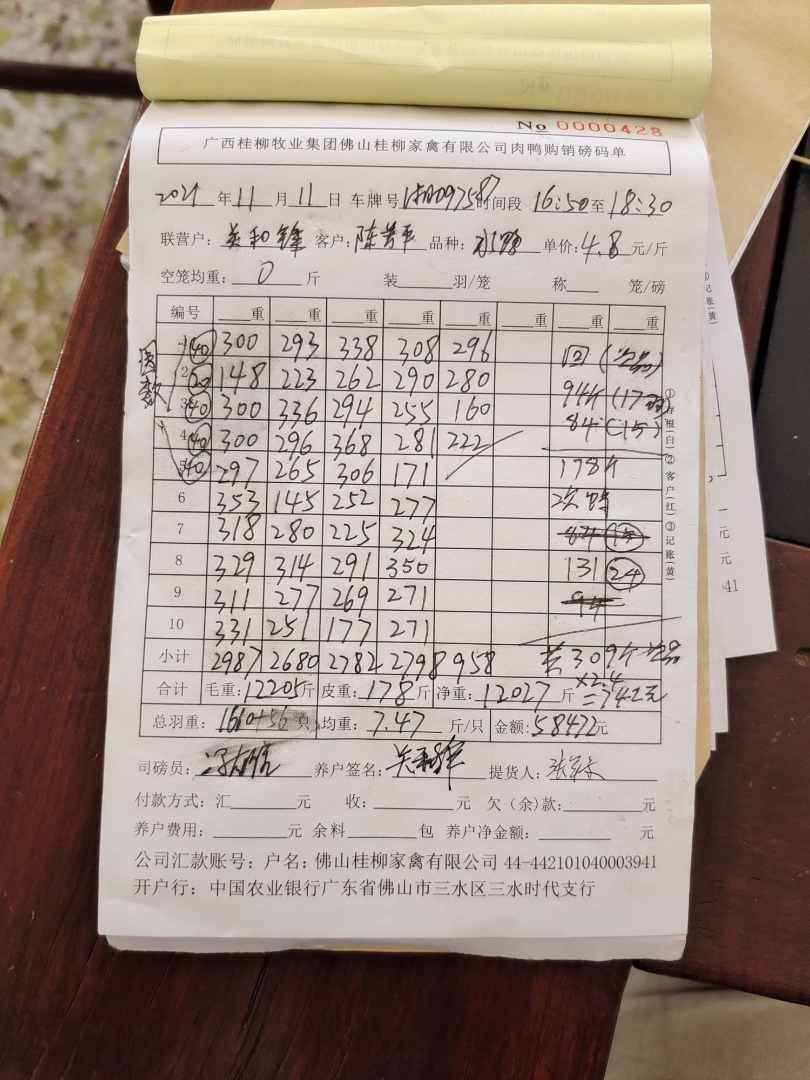 No 0000428
广西桂柳牧业集团佛山桂柳家禽有限公司肉鸭购销磅码单
2021 年 11 月 11 日 车牌号 09758 时间段 16:50 至 18:30
联营户: 和锋 客户: 陈芳平 品种: 水鸭 单价: 4.8 元/斤
空笼均重: 0 斤 装 羽/笼 称 笼/磅
编号 重 重 重 重 重 重 重 重
1 40 300 293 338 308 296 回
2 20 148 223 262 290 280 94斤(17
3 40 300 336 294 255 160 84(15)
4 40 300 296 368 281 222
5 40 297 265 306 171 178斤
6 353 145 252 277 次鸭
7 318 280 225 324 84 15
8 329 314 291 350 131 24
9 311 277 269 271 94
10 331 251 177 271
小计 2987 2680 2782 2798 958 共309斤
×2.4
合计 毛重: 12205 斤 皮重: 178 斤 净重: 12027 斤 =742元
总羽重: 1610+56 只 均重: 7.47 斤/只 金额: 58472 元
司磅员: 养户签名: 提货人:
付款方式: 汇 元 收: 元 欠(余)款: 元
养户费用: 元 余料 包 养户净金额: 元
公司汇款账号: 户名: 佛山桂柳家禽有限公司 44-442101040003941
开户行: 中国农业银行广东省佛山市三水区三水时代支行
①存根(白)②客户(红)③记账(黄)
记账(黄)
元
元
41